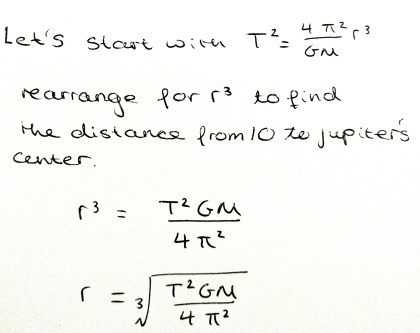 Let's start with T² = 4π²/GM r³
rearrange for r³ to find
the distance from IO to jupiter's
center.
r³ = T²GM/4π²
r = ∛(T²GM/4π²)